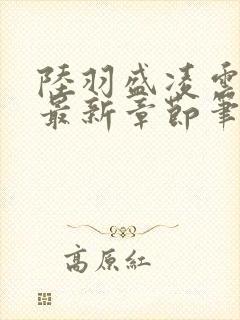 陸羽盛凌雲
最新章節筆
高原紅